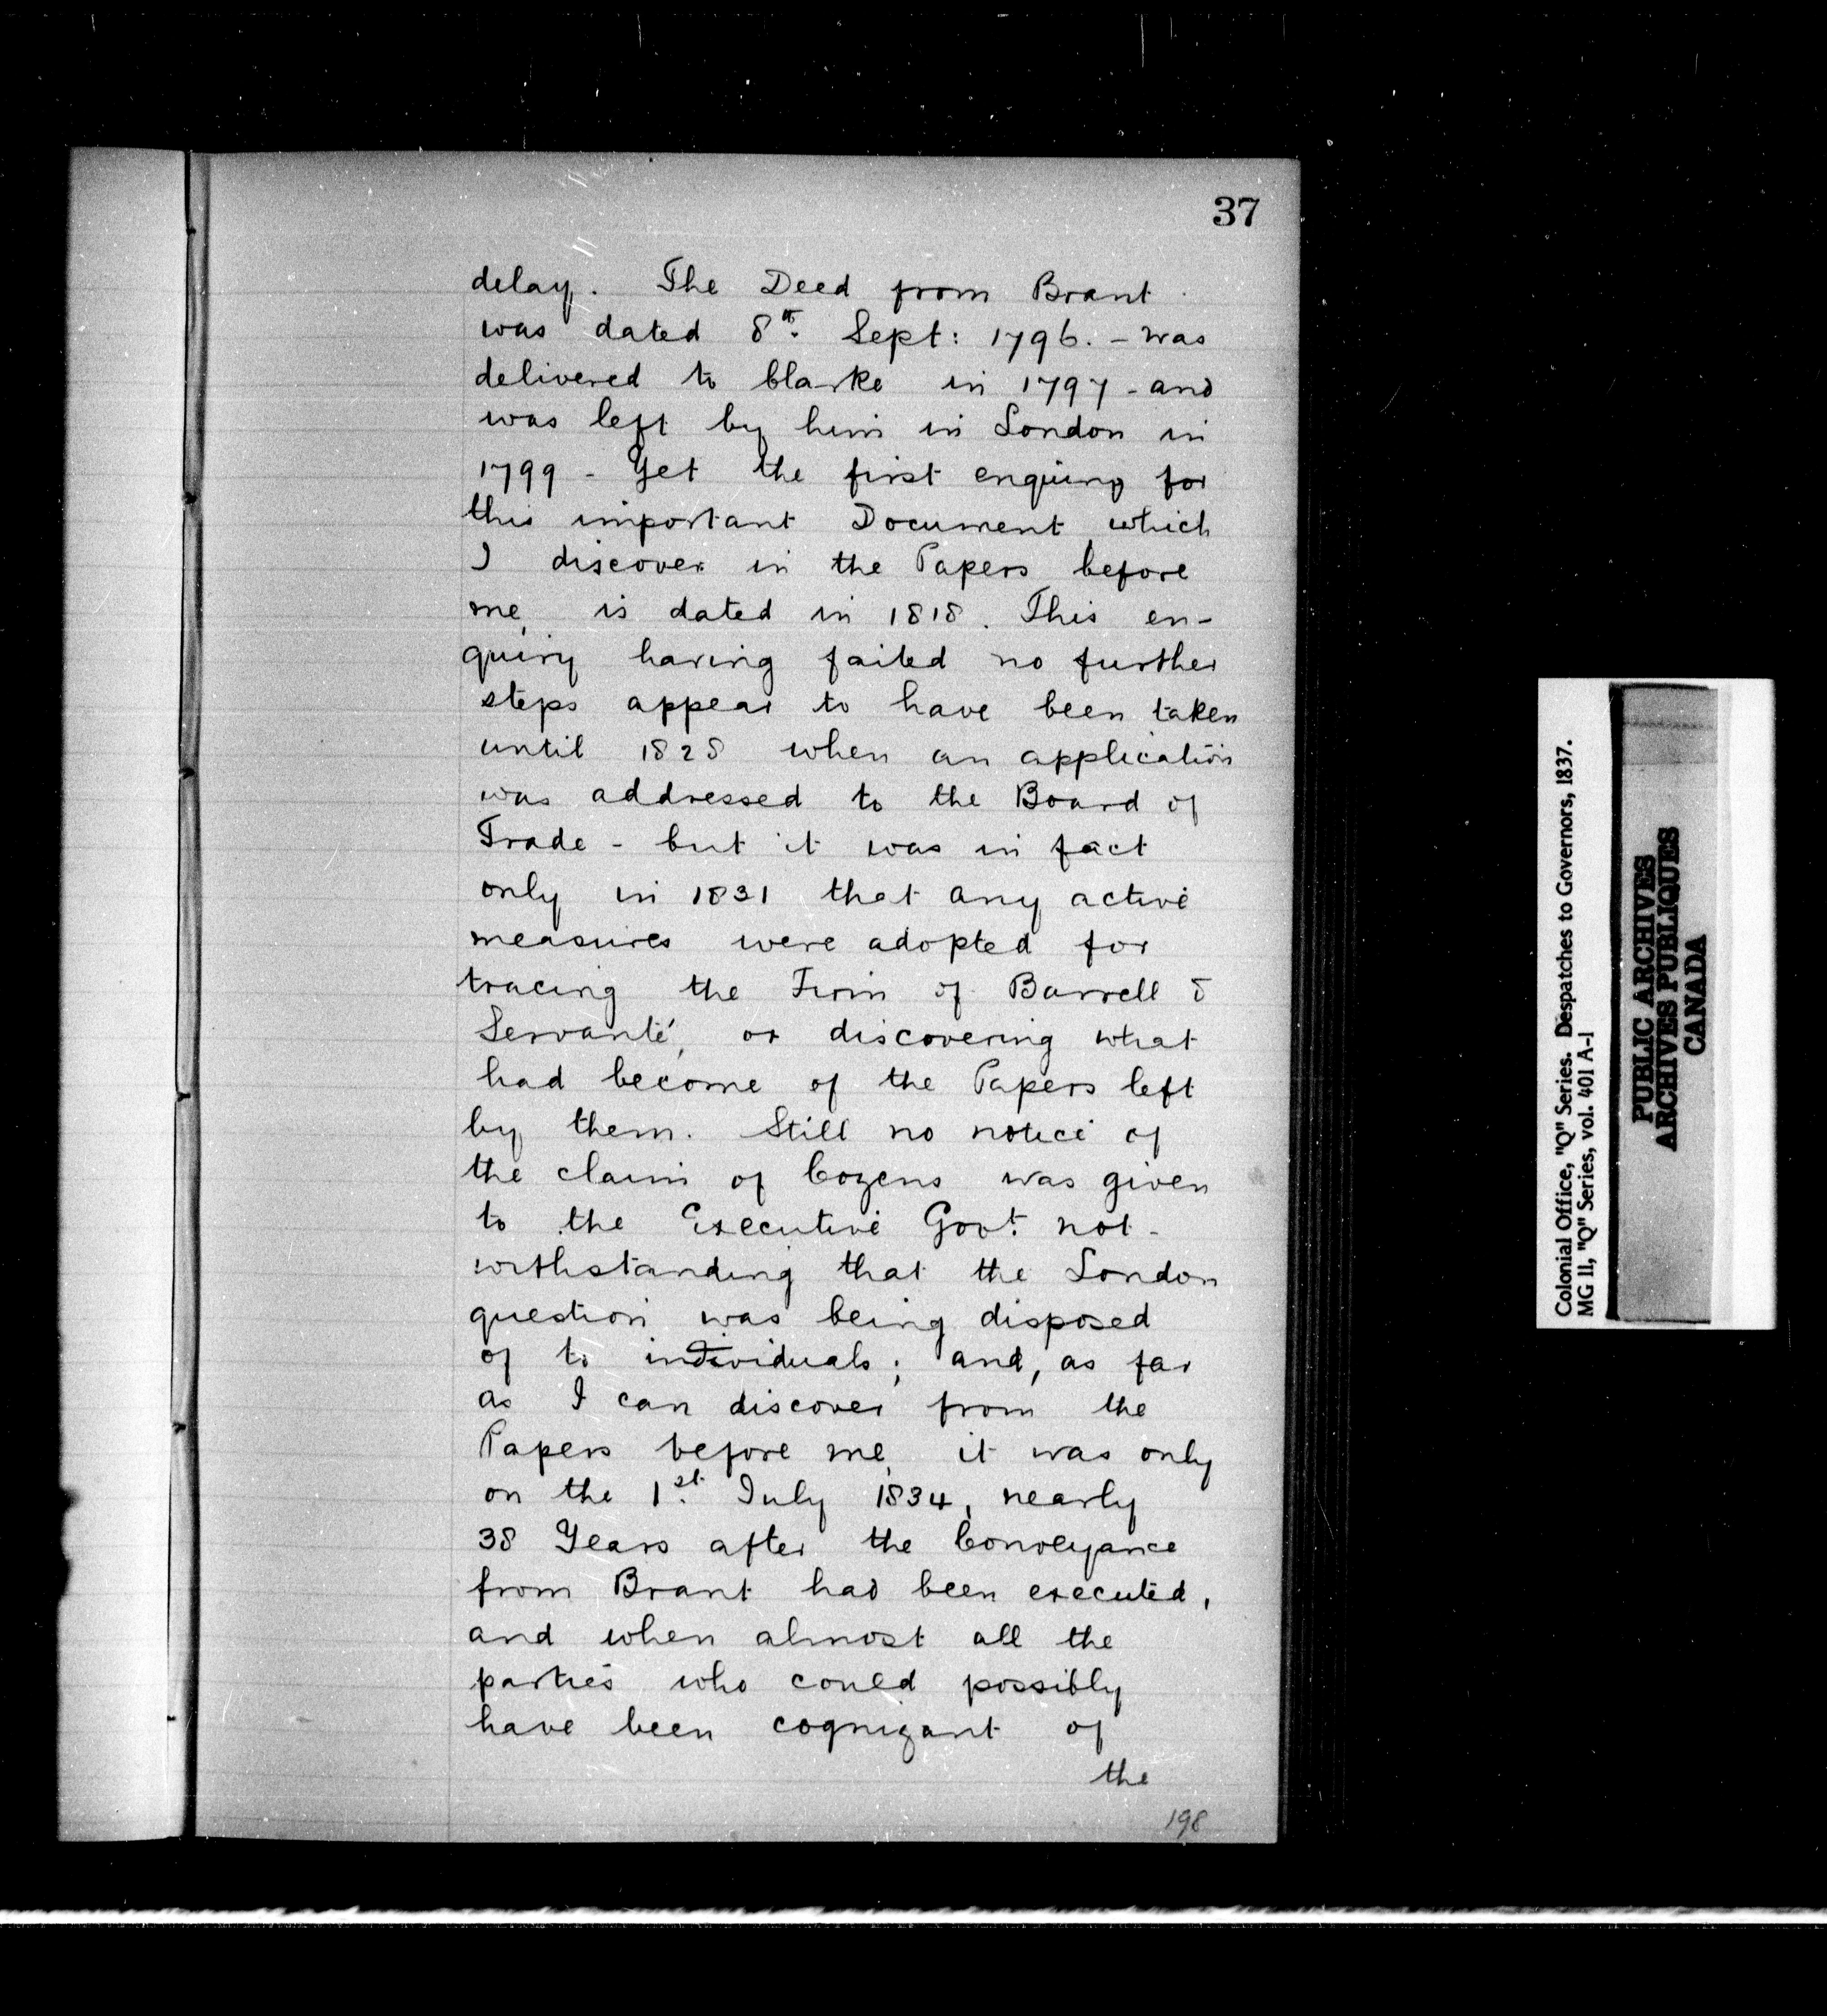 37
delay. The Deed from Brant
was dated 8th. Sept: 1796. - was
delivered to Clarke in 1797 - and
was left by him in London in
1799 - Yet the first enquiry for
this important Document which
I discover in the Papers before
me, is dated in 1818. This en-
quiry having failed no further
steps appear to have been taken
until 1828 when an application
was addressed to the Board of
Trade - but it was in fact
only in 1831 that any active
measures were adopted for
tracing the Firm of Barrell &
Servanté, or discovering what
had become of the Papers left
by them. Still no notice of
the claim of Cozens was given
to the Executive Govt. not-
withstanding that the London
question was being disposed
of to individuals; and, as far
as I can discover from the
Papers before me, it was only
on the 1st. July 1834, nearly
38 Years after the Conveyance
from Brant had been executed,
and when almost all the
parties who could possibly
have been cognizant of
the
198
Colonial Office, "Q" Series. Despatches to Governors, 1837.
MG 11, "Q" Series, vol. 401 A-1
PUBLIC ARCHIVES
ARCHIVES PUBLIQUES
CANADA